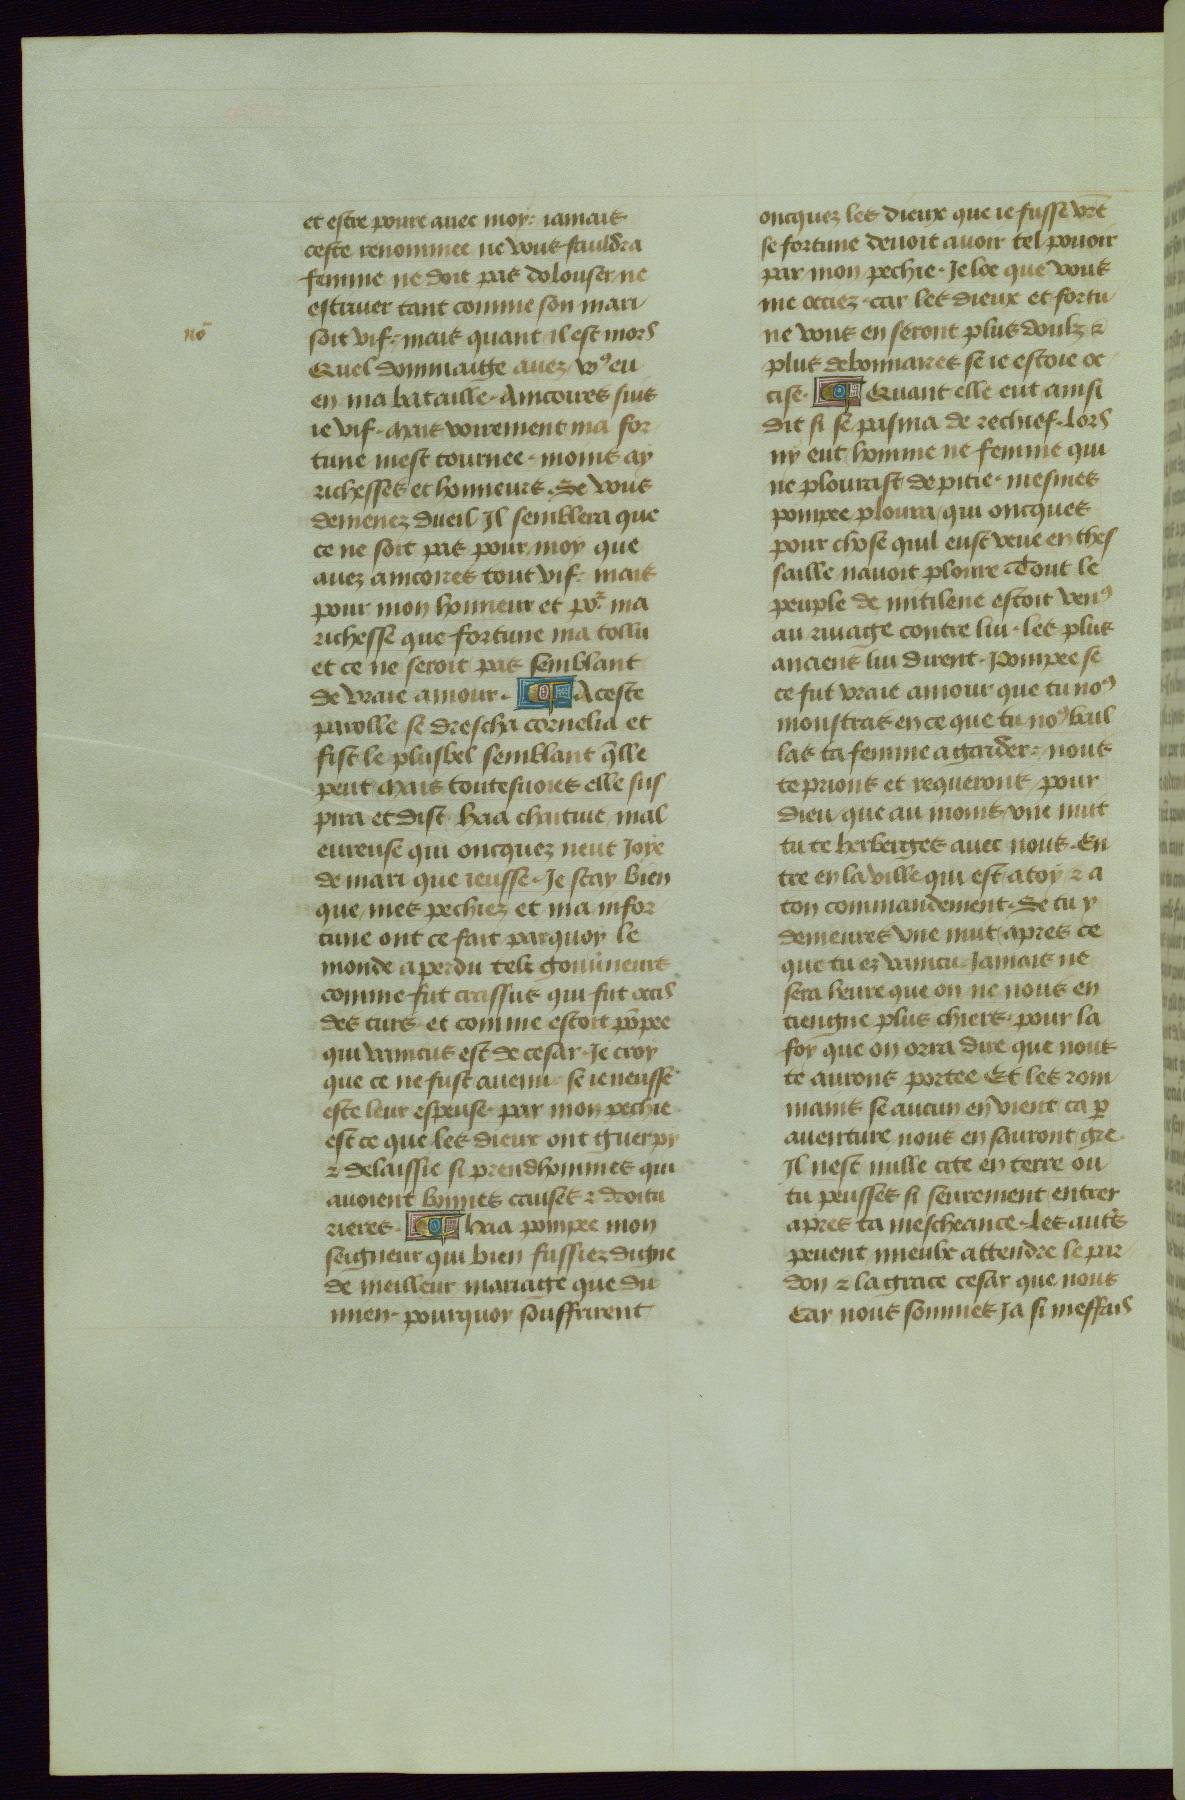 et estre poure auec moy: iamais
ceste renommee ne vous fauldra
femme ne doit pas dolouser ne
estriuer tant comme son mari
soit vif: mais quant il est mors
nō
Quel dommaige auez voꝰ eu
en ma bataille. Ancoires suis
ie vif. Mais voirement ma for
tune mest tournee. moins ay
richesses et honneurs. Se vous
demenez dueil Il semblera que
ce ne soit pas pour moy que
auez ancoires tout vif: mais
pour mon honneur et por ma
richesse que fortune ma tollu
et ce ne seroit pas semblant
de vraie amour. A ceste
parolle se drescha cornelia et
fist le plusbel semblant q̄lle
peut Mais toutesuoies elle sus
pira et dist haa chaitiue mal
eureuse qui oncquez neut Joye
de mari que ieusse. Je scay bien
que mes pechiez et ma infor
tune ont ce fait parquoy le
monde a perdu telz gouūneurs
comme fut crassus qui fut occis
des turs et comme estoit pōpee
qui vaincus est de cesar. Je croy
que ce ne fust auenu se ie neusse
este leur espeuse. par mon pechie
est ce que les dieux ont guerpy
⁊ delaissie si preudhommes qui
auoient bonnes causes ⁊ droitu
rieres. haa pompee mon
seigneur qui bien fussiez digne
de meilleur mariage que du
mien. pourquoy souffrirent
oncquez les dieux que ie fusse vr̄e
se fortune deuoit auoir tel pouoir
par mon pechie. Je loe que vous
me occiez. car les dieux et fortu
ne vous en seront plus doulz ⁊
plus debonnaires se ie estoie oc
cise. Quant elle eut ainsi
dit si se pasma de rechief. Lors
ny eut homme ne femme qui
ne plourast de pitie. mesmes
pompee ploura qui oncques
pour chose quil eust veue en thes
saille nauoit plouré Tout le
peuple de mitilene estoit venꝰ
au riuage contre lui. les plus
anciens lui dirent. Pompee se
ce fut vraie amour que tu noꝰ
monstras en ce que tu noꝰ bail
las ta femme a garder: nous
te prions et requerons pour
dieu que au moins vne nuit
tu te herberges auec nous. En
tre en la ville qui est a toy ⁊ a
ton commandement. Se tu y
demeures vne nuit apres ce
que tu ez vaincu. Jamais ne
sera heure que on ne nous en
tiengne plus chiers. pour la
foy que on orra dire que nous
te aurons portee Et les rom
mains se aucun en vient ca ꝑ
auenture nous en sauront gre.
Il nest nulle cite en terre ou
tu peusses si seurement entrer
apres ta mescheance. Les autr̄s
peuent mieulx attendre le par
don ⁊ la grace cesar que nous
Car nous sommes Ja si meffais